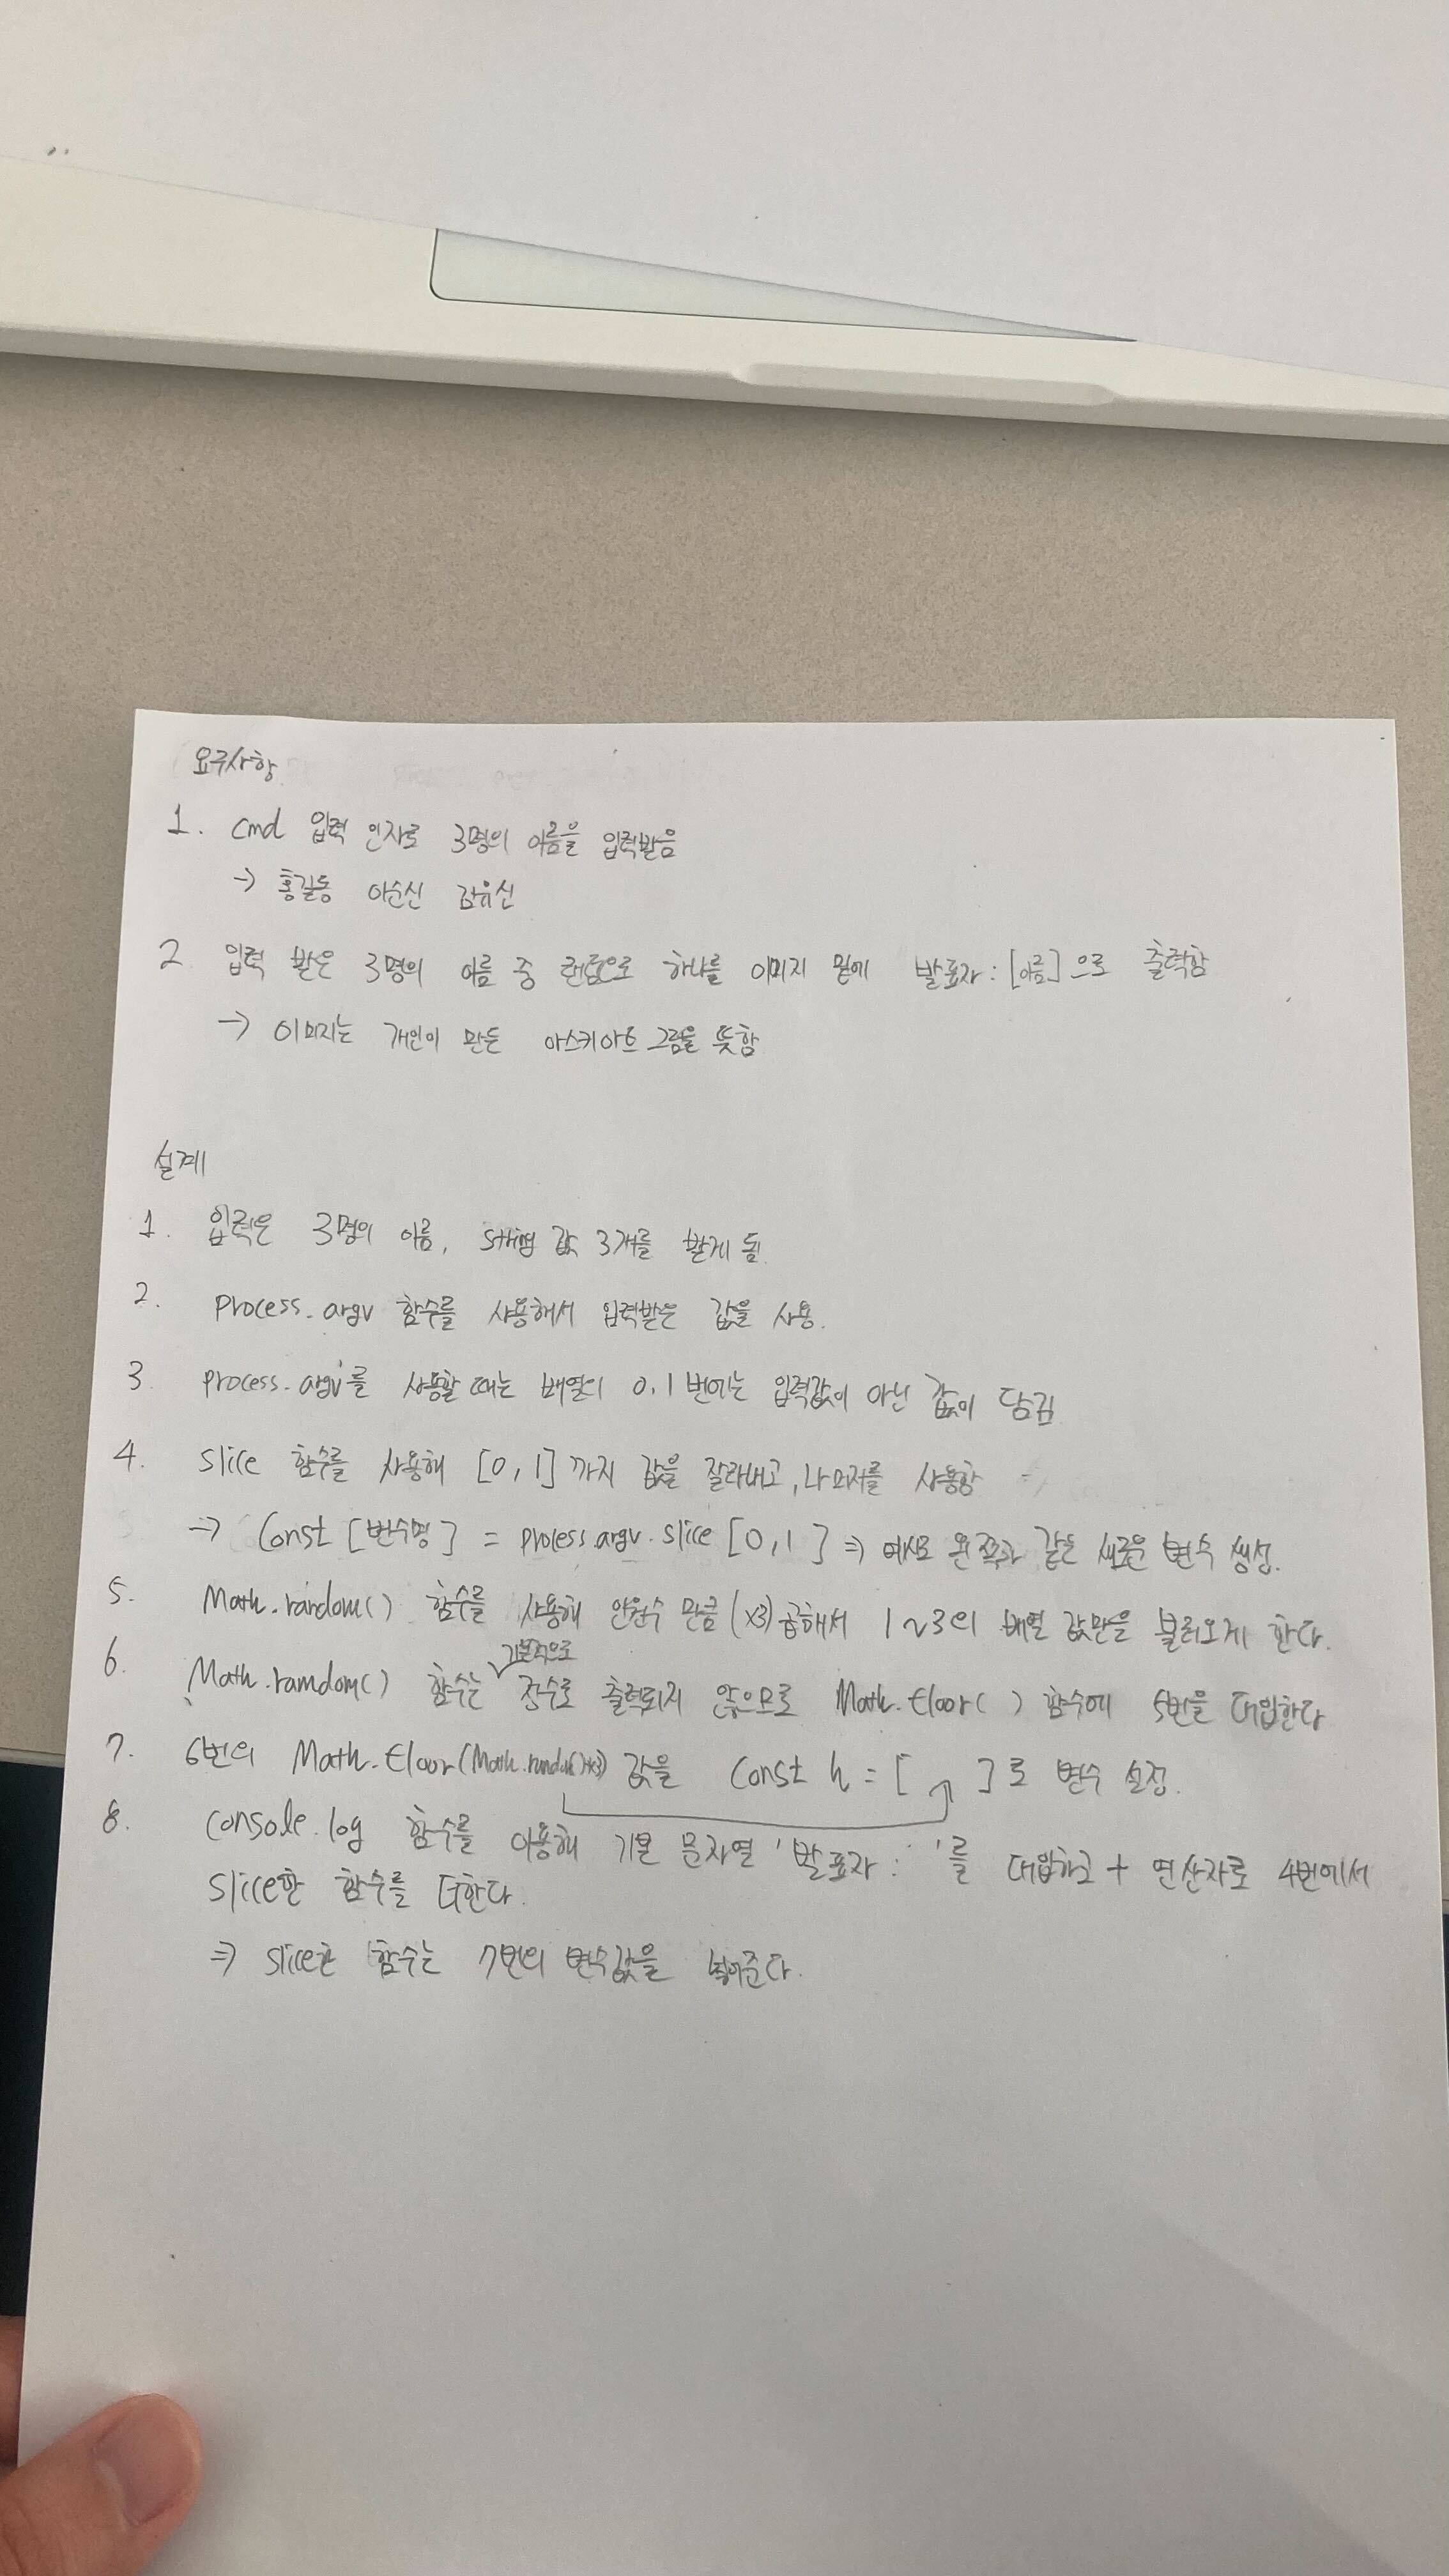 요구사항
1. cmd 입력 인자로 3명의 이름을 입력받음
→ 홍길동 이순신 김유신
2 입력 받은 3명의 이름 중 랜덤으로 하나를 이미지 밑에 발표자 : [이름] 으로 출력함
→ 이미지는 개인이 만든 아스키아트 그림을 뜻함
설계
1. 입력은 3명의 이름, string 값 3개를 받게 됨
2. process.argv 함수를 사용해서 입력받은 값을 사용.
3 process.argv를 사용할 때는 배열의 0, 1번에는 입력값이 아닌 값이 담김
4. slice 함수를 사용해 [0, 1] 까지 값을 잘라내고, 나머지를 사용함
→ Const [변수명] = process.argv.slice [0, 1] ⇒ 예시로 왼쪽과 같은 새로운 변수 생성.
5. Math.random() 함수를 사용해 인원수 만큼 (x3) 곱해서 1~3의 배열 값만을 불러오게 한다.
6. Math.ramdom() 함수는 기본적으로 정수로 출력되지 않으므로 Math.floor( ) 함수에 5번을 대입한다
7. 6번의 Math.floor(Math.random()*3) 값을 Const h = [ ]로 변수 설정.
8. console.log 함수를 이용해 기본 문자열 '발표자 : '를 대입하고 + 연산자로 4번에서
slice한 함수를 더한다.
⇒ slice한 함수는 7번의 변수값을 넣어준다.